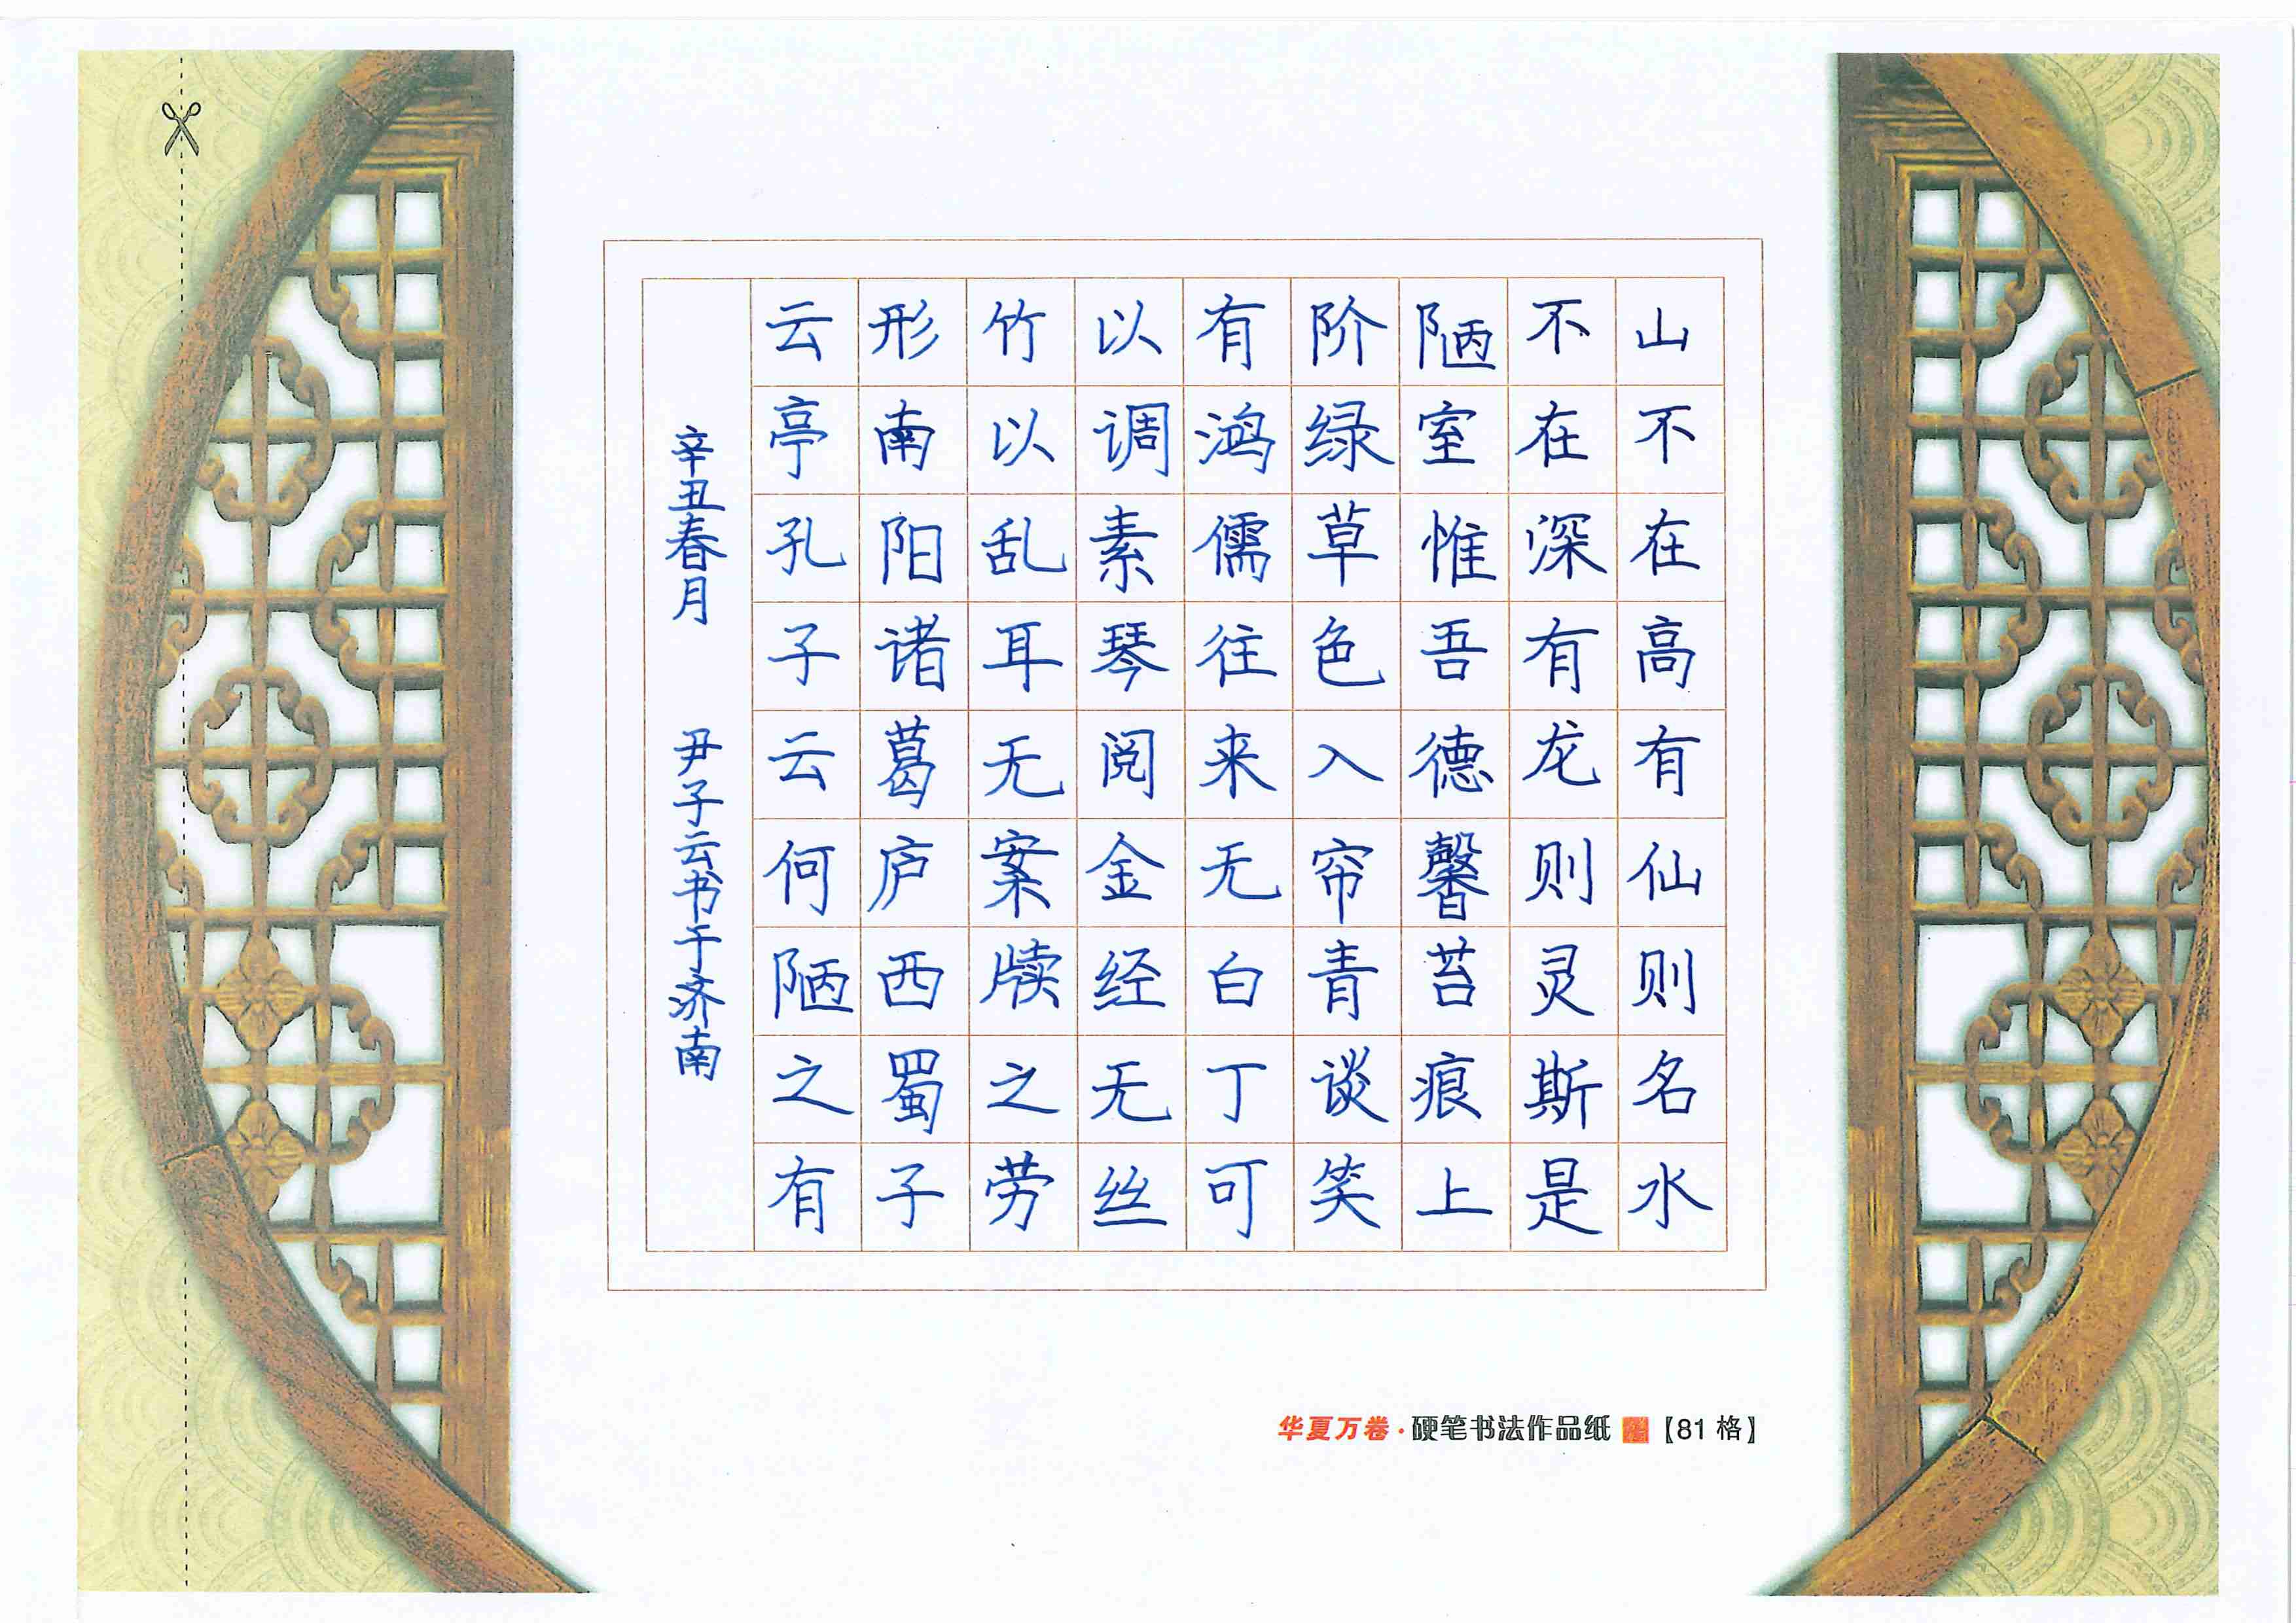 山不在高有仙则名水
不在深有龙则灵斯是
陋室惟吾德馨苔痕上
阶绿草色入帘青谈笑
有鸿儒往来无白丁可
以调素琴阅金经无丝
竹以乱耳无案牍之劳
形南阳诸葛庐西蜀子
云亭孔子云何陋之有
辛丑春月 尹子云书于济南
华夏万卷·硬笔书法作品纸【81格】